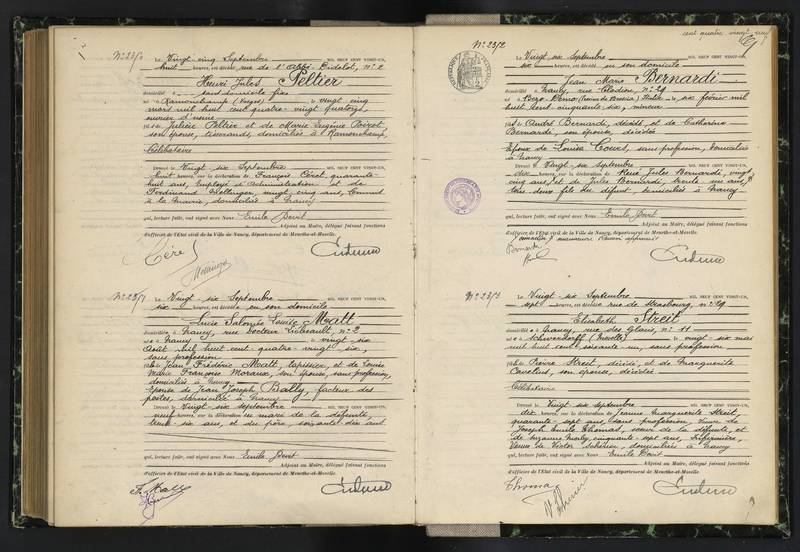 cent quatre vingt
N° 2370
Le Vingt cinq Septembre MIL NEUF CENT VINGT-UN,
huit heures, est décédé rue de l'Abbé Gridelot, n° 2
Henri Jules Peltier
domicilié à sans domicile fixe
né à Ramonchamp (Vosges) le vingt cinq
mars mil huit cent quatre-vingt quatorze,
ouvrier d'usine
fils de Julien Peltier et de Marie Eugénie Poirot,
son épouse, tisserands, domiciliés à Ramonchamp,
Célibataire
Dressé le Vingt six Septembre MIL NEUF CENT VINGT-UN,
huit heures, sur la déclaration de François Céré, quarante
huit ans, Employé d'administration et de
Ferdinand vingt cinq ans, Commis
à la Mairie, domiciliés à Nancy
qui, lecture faite, ont signé avec Nous Emile Devit
Adjoint au Maire, délégué faisant fonctions
d'officier de l'État civil de la Ville de Nancy, département de Meurthe-et-Moselle.
Céré
N° 2371
Le Vingt-six Septembre MIL NEUF CENT VINGT-UN,
six heures, est décédée en son domicile
Lucie Salomée Louise Matt
domiciliée à Nancy, rue Docteur Liébeault, n° 2
née à Nancy le vingt six
Août mil huit cent quatre-vingt six,
sans profession
fille de Jean Frédéric Matt, tapissier, et de Louise
Marie Françoise Moraux, son épouse, sans profession,
domiciliés à Nancy
épouse de Jean Joseph Bally, facteur des
postes, domicilié à Nancy
Dressé le Vingt-six septembre MIL NEUF CENT VINGT-UN,
neuf heures, sur la déclaration du mari de la défunte,
trente six ans, et du père, soixante dix ans
qui, lecture faite, ont signé avec Nous Emile Devit
Adjoint au Maire, délégué faisant fonctions
d'officier de l'État civil de la Ville de Nancy, département de Meurthe-et-Moselle.
F. Matt
N° 2372
Le Vingt six Septembre MIL NEUF CENT VINGT-UN,
six heures, est décédé en son domicile
Jean Marie Bernardi
domicilié à Nancy, rue Clodion, n° 29
né à (Province de) Italie le six février mil
huit cent cinquante six, mineur
fils d'André Bernardi, décédé et de Catherine
Bernardi, son épouse, décédée
Epoux de Louise Cours, sans profession, domiciliée
à Nancy
Dressé le Vingt six septembre MIL NEUF CENT VINGT-UN,
dix heures, sur la déclaration de René Jules Bernardi, vingt
cinq ans, et de Jules Bernardi, trente un ans,
tous deux fils du défunt, domiciliés à Nancy
qui, lecture faite, ont signé avec Nous Emile Devit
Adjoint au Maire, délégué faisant fonctions
d'officier de l'État civil de la Ville de Nancy, département de Meurthe-et-Moselle.
Bernardi
N° 2373
Le Vingt six Septembre MIL NEUF CENT VINGT-UN,
sept heures, est décédée rue de Strasbourg, n° 29
Elisabeth Streit
domiciliée à Nancy, rue des Glacis, n° 11
née à Schwerdorff (Moselle) le vingt-six mai
mil huit cent soixante un, sans profession
fille de Pierre Streit, décédé, et de Marguerite
Cavelius, son épouse, décédée
Célibataire
Dressé le Vingt six septembre MIL NEUF CENT VINGT-UN,
dix heures, sur la déclaration de Jeanne Marguerite Streit,
quarante-sept ans, sans profession, Veuve de
Joseph Emile Thomas, sœur de la défunte, et
de Suzanne cinquante-sept ans, infirmière,
Veuve de Victor domiciliées à Nancy
qui, lecture faite, ont signé avec Nous Emile Devit
Adjoint au Maire, délégué faisant fonctions
d'officier de l'État civil de la Ville de Nancy, département de Meurthe-et-Moselle.
Thomas